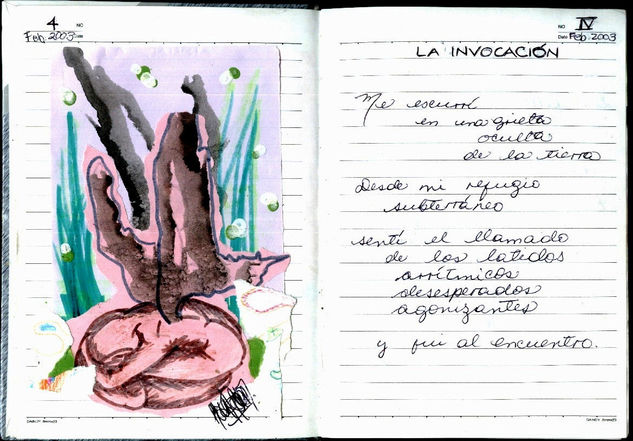 4 NO
Feb. 2003 Date
NO IV
Date Feb. 2003
LA INVOCACIÓN
Me escurrí
en una grieta
oculta
de la tierra
Desde mi refugio
subterráneo
sentí el llamado
de los latidos
arrítmicos
desesperados
agonizantes
y fui al encuentro.